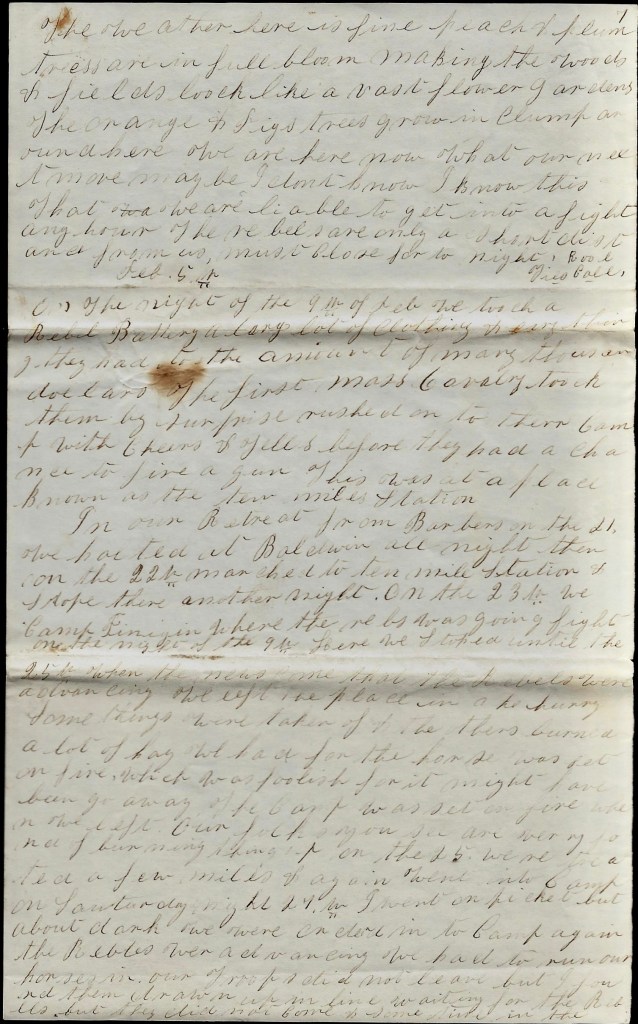 7
The weather here is fine peach & plum
tress are in full bloom making the woods
& fields loock like a vast flower gardens
The orange & Figs trees grow in Clump ar
ound here we are here now what our nex
t move may be I dont know I know this
That we are liable to get into a fight
any hour The rebels are only a Short dist
ance from us, must Close for to night,
Feb. 5th
On The night of the 9th of Feb we toock a
Rebel Battery a larg lot of Clothing & every thin
g they had to the amount of many thousen
dollars The first Mass Cavalry toock
them by surprise rushed on to there Cam
p with Cheers & yells before they had a cha
nce to fire a gun This was at a place
Known as the ten miles Station
In our Retreat from Barbers on the 21,
we halted at Baldwin all night then
on the 22th marched to ten mile Station &
Stope there another night. On the 23th we
Camp Finigin where the rebs was going fight
on the night of the 9th here we Stoped until the
25th when the news came that the Rebels were
advancing we left the place in a hurry
Some things were taken of & the thers burned
a lot of hay we had for the horse was set
on fire, which was foolish for it might have
been go away The Camp was set on fire whe
n we left. Our folks you see are werry fo
nd of burning things up on the 25. we re trea
ted a few miles & again Went into Camp
on Sauturday night 27,th I went on picket but
about dark we were orderd in to Camp again
the Rebles wer advancing we had to run our
horses in. our Troops did not leave but I fou
nd them drawn up in line waiting for the Reb
ells but they did not Come & some time in the